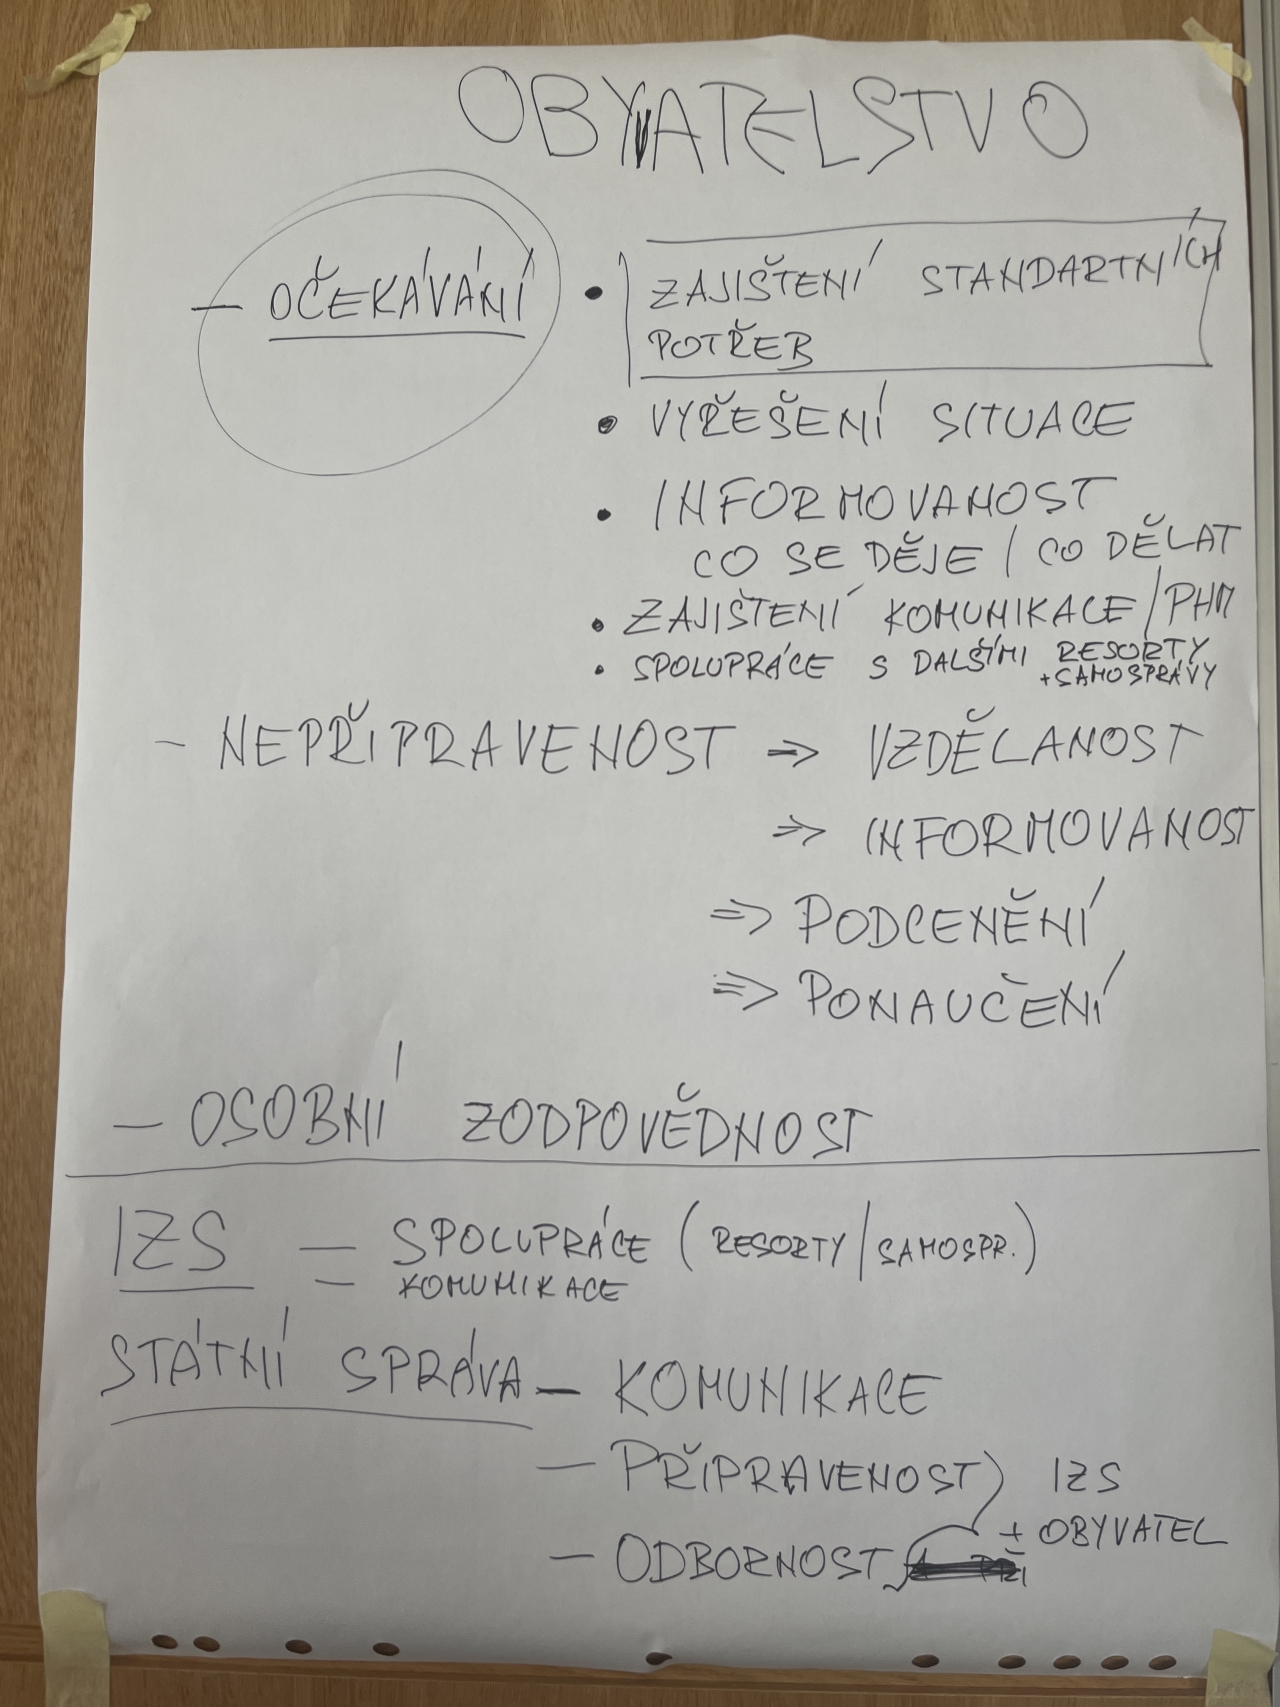 OBYVATELSTVO
– OČEKÁVÁNÍ
• ZAJIŠTĚNÍ STANDARTNÍCH
POTŘEB
• VYŘEŠENÍ SITUACE
• INFORMOVANOST
CO SE DĚJE / CO DĚLAT
• ZAJIŠTĚNÍ KOMUNIKACE / PHM
• SPOLUPRÁCE S DALŠÍMI RESORTY
+ SAMOSPRÁVY
– NEPŘIPRAVENOST ⇒ VZDĚLANOST
⇒ INFORMOVANOST
⇒ PODCENĚNÍ
⇒ PONAUČENÍ
– OSOBNÍ ZODPOVĚDNOST
IZS – SPOLUPRÁCE (RESORTY / SAMOSPR.)
– KOMUNIKACE
STÁTNÍ SPRÁVA – KOMUNIKACE
– PŘIPRAVENOST IZS
+ OBYVATEL
– ODBORNOST